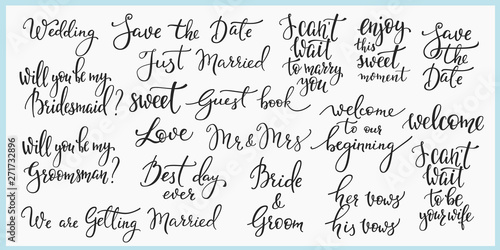 Wedding
Save the Date
I can't
wait
to marry
you
enjoy
this
sweet
moment
Save
the
Date
Just Married
will you be my
Bridesmaid?
sweet
Guest book
Love
Mr & Mrs
welcome
to our
beginning
welcome
will you be my
Groomsman?
Best day
ever
Bride
&
Groom
her vows
his vows
I can't
wait
to be
your wife
We are Getting Married
Adobe Stock | #271732896